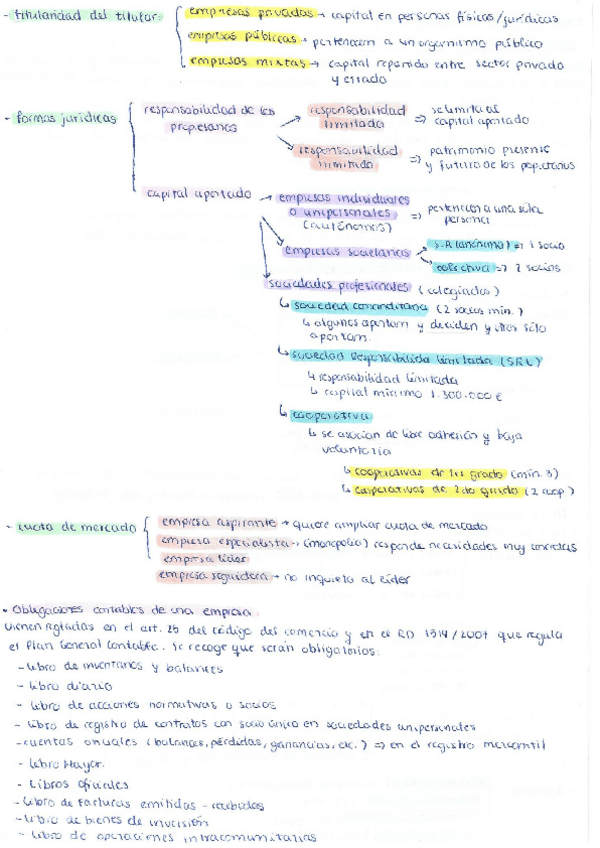 - titularidad del titular:
empresas privadas → capital en personas físicas/jurídicas
empresas públicas → pertenecen a un organismo público
empresas mixtas → capital repartido entre sector privado
y estado
- formas jurídicas
responsabilidad de los
propietarios
responsabilidad
limitada
⇒ se limita al
capital aportado
responsabilidad
ilimitada
⇒ patrimonio presente
y futuro de los propietarios
capital aportado
empresas individuales
o unipersonales
(autónomos)
⇒ pertenecen a una sola
persona
empresas societarias
S.A (anónima) ⇒ 1 socio
colectiva ⇒ 2 socios
sociedades profesionales (colegiados)
↳ sociedad comanditaria (2 socios mín.)
↳ algunos aportam y deciden y otros sólo
aportam.
↳ sociedad Responsabilida limitada (SRL)
↳ responsabilidad limitada
↳ capital mínimo 1.300.000 €
↳ cooperativa
↳ se asocian de libre adhesión y baja
voluntaria
↳ cooperativas de 1er grado (mín. 3)
↳ cooperativas de 2do grado (2 coop)
- cuota de mercado
empresa aspirante → quiere ampliar cuota de mercado
empresa especialista → (monopolio) responde necesidades muy concretas
empresa líder
empresa seguidora → no inquieta al líder
• Obligaciones contables de una empresa:
vienen regladas en el art. 25 del código del comercio y en el RD 1514/2007 que regula
el Plan General Contable. Se recoge que serán obligatorios:
- libro de inventarios y balances
- libro diario
- libro de acciones normativas o socios
- libro de registro de contratos con socio único en sociedades unipersonales
- cuentas anuales (balances, pérdidas, ganancias, etc.) ⇒ en el registro mercantil
- libro Mayor.
- Libros oficiales
- Libro de facturas emitidas - recibidas
- Libro de bienes de inversión
- libro de operaciones intracomunitarias